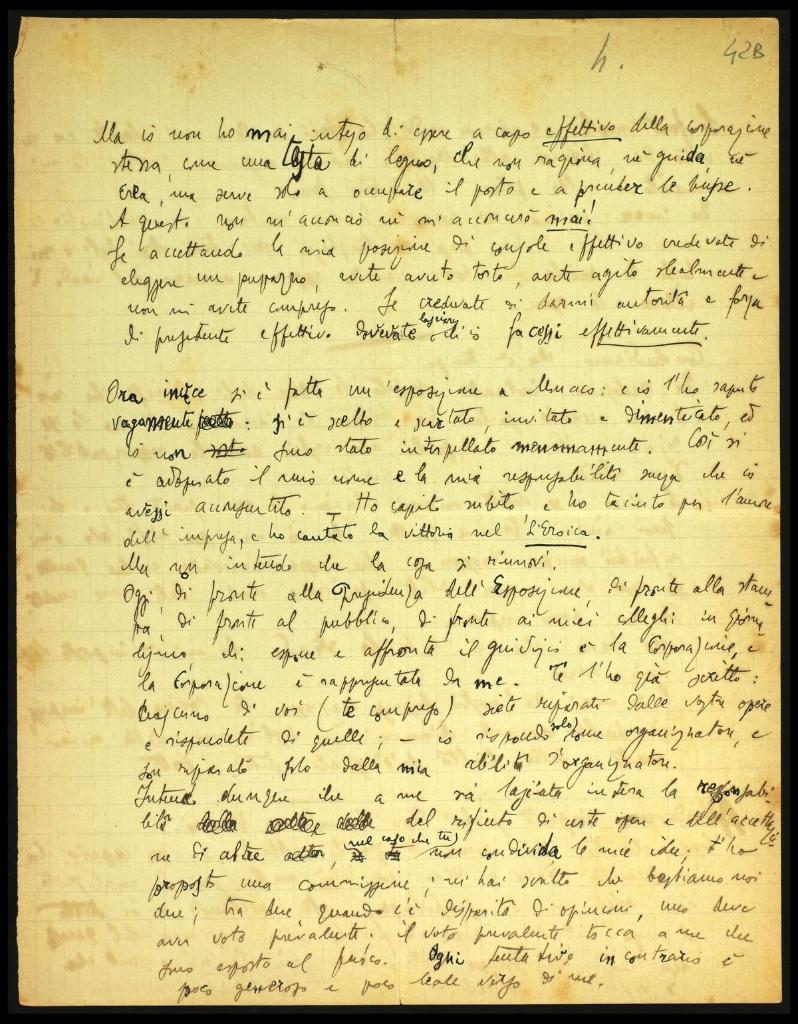 4. 42B
Ma io non ho mai inteso di essere a capo effettivo della corporazione
stessa, come una testa di legno, che non ragiona, nè guida, nè
crea, ma serve solo a occupare il posto e a prender le busse.
A questo non m'acconcio nè m'acconcerò mai!
Se accettando la mia posizione di console effettivo credevate di
eleggere un pupazzo, avete avuto torto, avete agito slealmente e
non mi avete compreso. Se credevate di darmi autorità e forza
di presidente effettivo dovevate lasciare ch'io facessi effettivamente.
Ora invece si è fatta un'esposizione a Monaco: e io l'ho saputo
vagamente: si è scelto e scartato, invitato e dimenticato, ed
io non sono stato interpellato menomamente. Così si
è adoperato il mio nome e la mia responsabilità senza che io
avessi acconsentito. – Ho capito subito e ho taciuto per l'amore
dell'impresa, e ho cantato la vittoria nel L'Eroica.
Ma non intendo che la cosa si rinnovi.
Oggi, di fronte alla Presidenza dell'Esposizione, di fronte alla stam
pa, di fronte al pubblico, di fronte ai miei colleghi in giorna
lismo chi espone e affronta il giudizio è la Corporazione, e
la Corporazione è rappresentata da me. Te l'ho già scritto:
Ciascuno di voi (te compreso) siete riparati dalle vostre opere
e rispondete di quelle; – io rispondo solo come organizzatore, e
son riparato solo dalla mia abilità d'organizzatore.
Intendo dunque che a me sia lasciata intera la responsabi-
lità del rifiuto di certe opere e dell'accettazio
ne di altre, nel caso che tu non condivida le mie idee; t'ho
proposto una commissione; mi hai scritto che bastiamo noi
due; tra due, quando c'è disparità di opinioni, uno deve
aver voto prevalente. il voto prevalente tocca a me che
sono esposto al fuoco. Ogni tentativo in contrario è
poco generoso e poco leale verso di me.